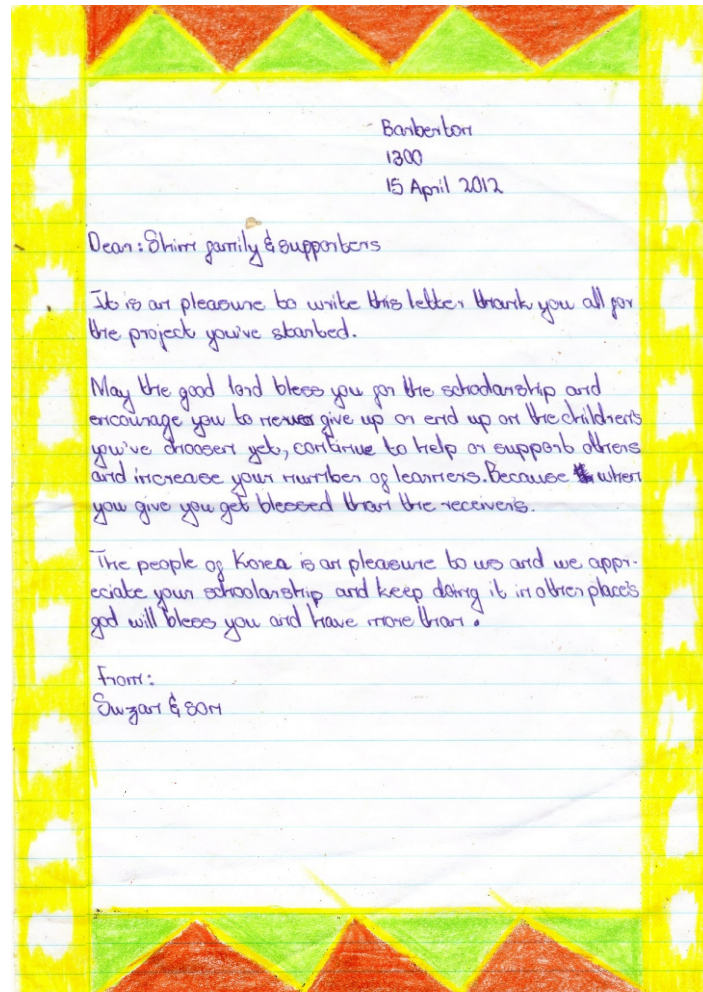 Barberton
1300
15 April 2012
Dear: Shim family & supporters
It is an pleasure to write this letter thank you all for
the project you've started.
May the good lord bless you for the schoolarship and
encourage you to never give up or end up on the children's
you've choosen yet, continue to help or support others
and increase your number of learners. Because when
you give you get blessed than the receivers.
The people of Korea is an pleasure to us and we appr-
eciate your schoolarship and keep doing it in other place's
god will bless you and have more than.
From:
Suzan & son